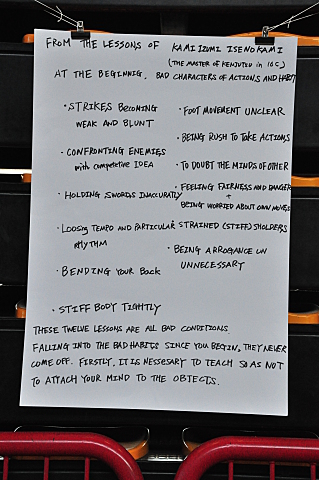 FROM THE LESSONS OF KAMI IZUMI ISENOKAMI
(THE MASTER OF KENJUTSU in 16C)
AT THE BEGINNIG, BAD CHARACTERS OF ACTIONS AND HABIT
・STRIKES BECOMING
WEAK AND BLUNT
・CONFRONTING ENEMIES
with competitive IDEA
・HOLDING SWORDS INACCURATLY
・LOOSING TEMPO AND PARTICULAR
RHYTHM
・BENDING YOUR BACK
・STIFF BODY TIGHTLY
・FOOT MOVEMENT UNCLEAR
・BEING RUSH TO TAKE ACTIONS
・TO DOUBT THE MINDS OF OTHER
・FEELING FAIRNESS AND DANGER
+
BEING WORRIED ABOUT OWN MOVES
・STRAINED (STIFF) SHOLDERS
・BEING ARROGANCE UN
UNNECESSARY
THESE TWELVE LESSONS ARE ALL BAD CONDITIONS
FALLING INTO THE BAD HABITS SINCE YOU BEGIN, THEY NEVER
COME OFF. FIRSTLY, IT IS NESSESARY TO TEACH SO AS NOT
TO ATTACH YOUR MIND TO THE OBJECTS.